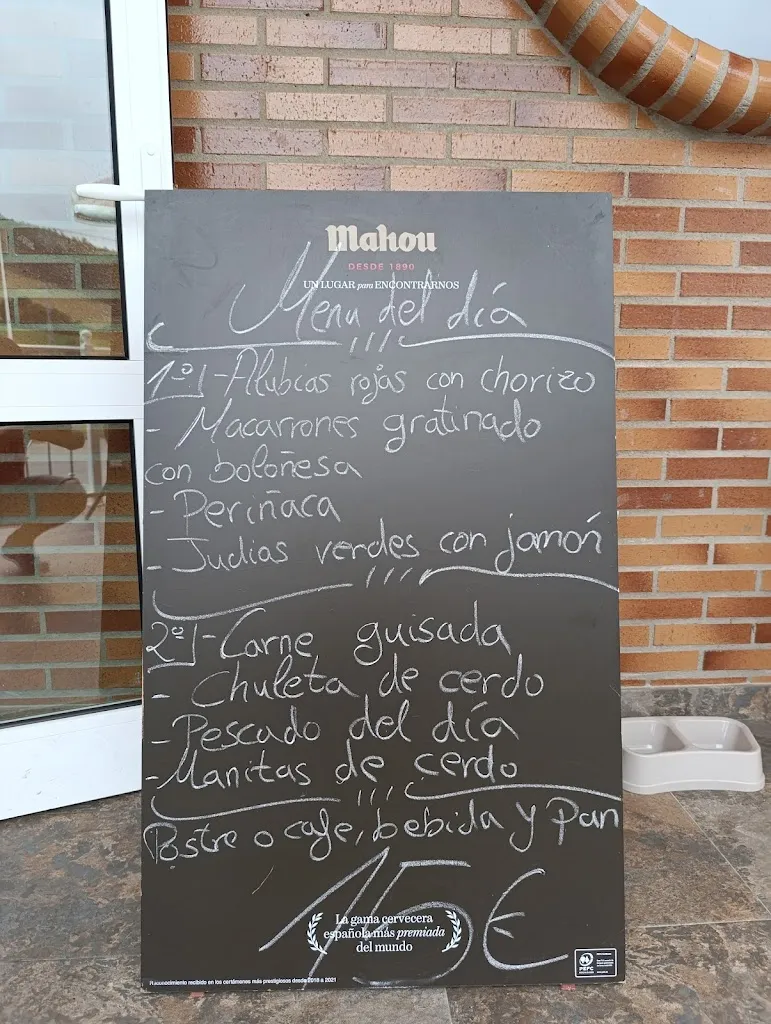 Mahou
DESDE 1890
UN LUGAR para ENCONTRARNOS
Menu del día
1º-Alubias rojas con chorizo
- Macarrones gratinado
con boloñesa
- Periñaca
- Judias verdes con jamón
2º-Carne guisada
- Chuleta de cerdo
- Pescado del día
- Manitas de cerdo
Postre o cafe, bebida y pan
15€
La gama cervecera
española más premiada
del mundo
PEFC
Reconocimiento recibido en los certámenes más prestigiosos desde 2018 a 2021